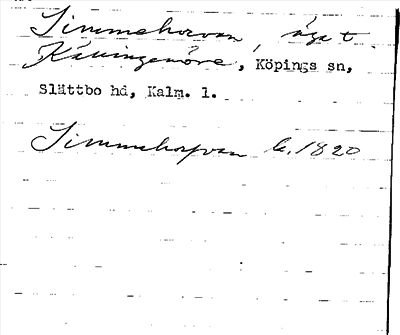 Simmehorvan, äga t.
Kåningenöre, Köpings sn,
Slättbo hd, Kalm. l.
Simmehorvan b. 1820